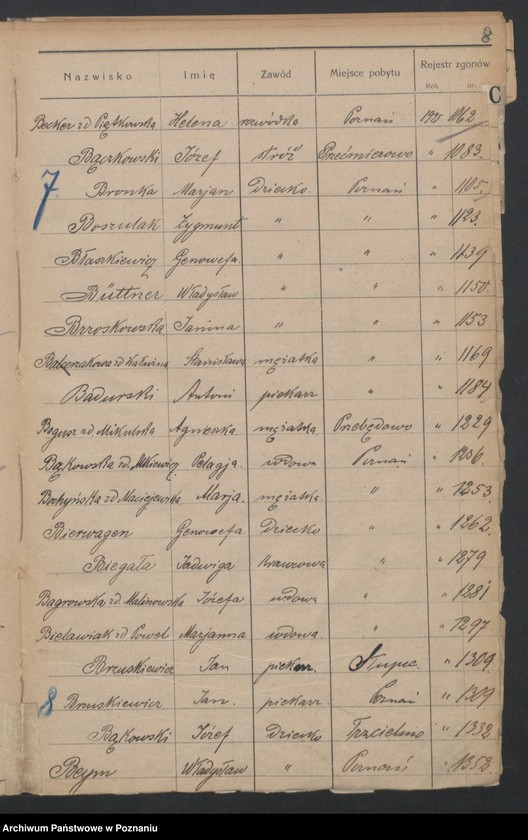 8
Nazwisko Imię Zawód Miejsce pobytu Rejestr zgonów
Rok nr.
C
Becker zd Piątkowska Helena rozwódka Poznań 1925 1062
Bączkowski Józef stróż Przeźmierowo " 1083
7 Bronka Marjan Dziecko Poznań " 1105
Boszulak Zygmunt " " " 1123
Błaszkiewicz Genowefa " " " 1139
Büttner Władysław " " " 1150
Brzoskowska Janina " " " 1153
Stanisława mężatka " " 1169
Badurski Antoni piekarz " " 1184
Bogusz zd Mikulska Agnieszka mężatka " 1229
Bąkowska zd. Pelagja wdowa Poznań " 1236
zd Maciejewska Marja mężatka " " 1253
Bierwagen Genowefa Dziecko " " 1262
Biegała Jadwiga krawcowa " " 1279
Bagrowska zd. Malinowska Józefa wdowa " " 1281
Bielawiak zd Marjanna wdowa " " 1297
Bruskiewicz Jan piekarz Słupec " 1309
8 Bruskiewicz Jan piekarz Poznań " 1309
Bąkowski Józef dziecko Trzcielino " 1338
Beym Władysław " Poznań " 1352
Archiwum Państwowe w Poznaniu